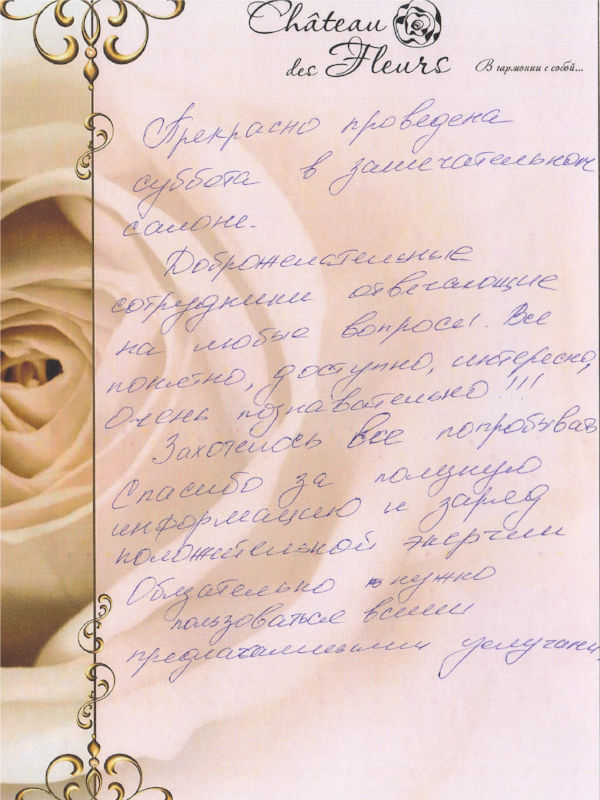 Château
des Fleurs
В гармонии с собой...
Прекрасно проведена
суббота в замечательном
салоне.
Доброжелательные
сотрудники отвечающие
на любые вопросы. Все
понятно, доступно, интересно,
Очень познавательно!!!
Захотелось все попробывать
Спасибо за полезную
информацию и заряд
положительной энергии
Обязательно нужно
пользоваться всеми
предлагаемыми услугами,